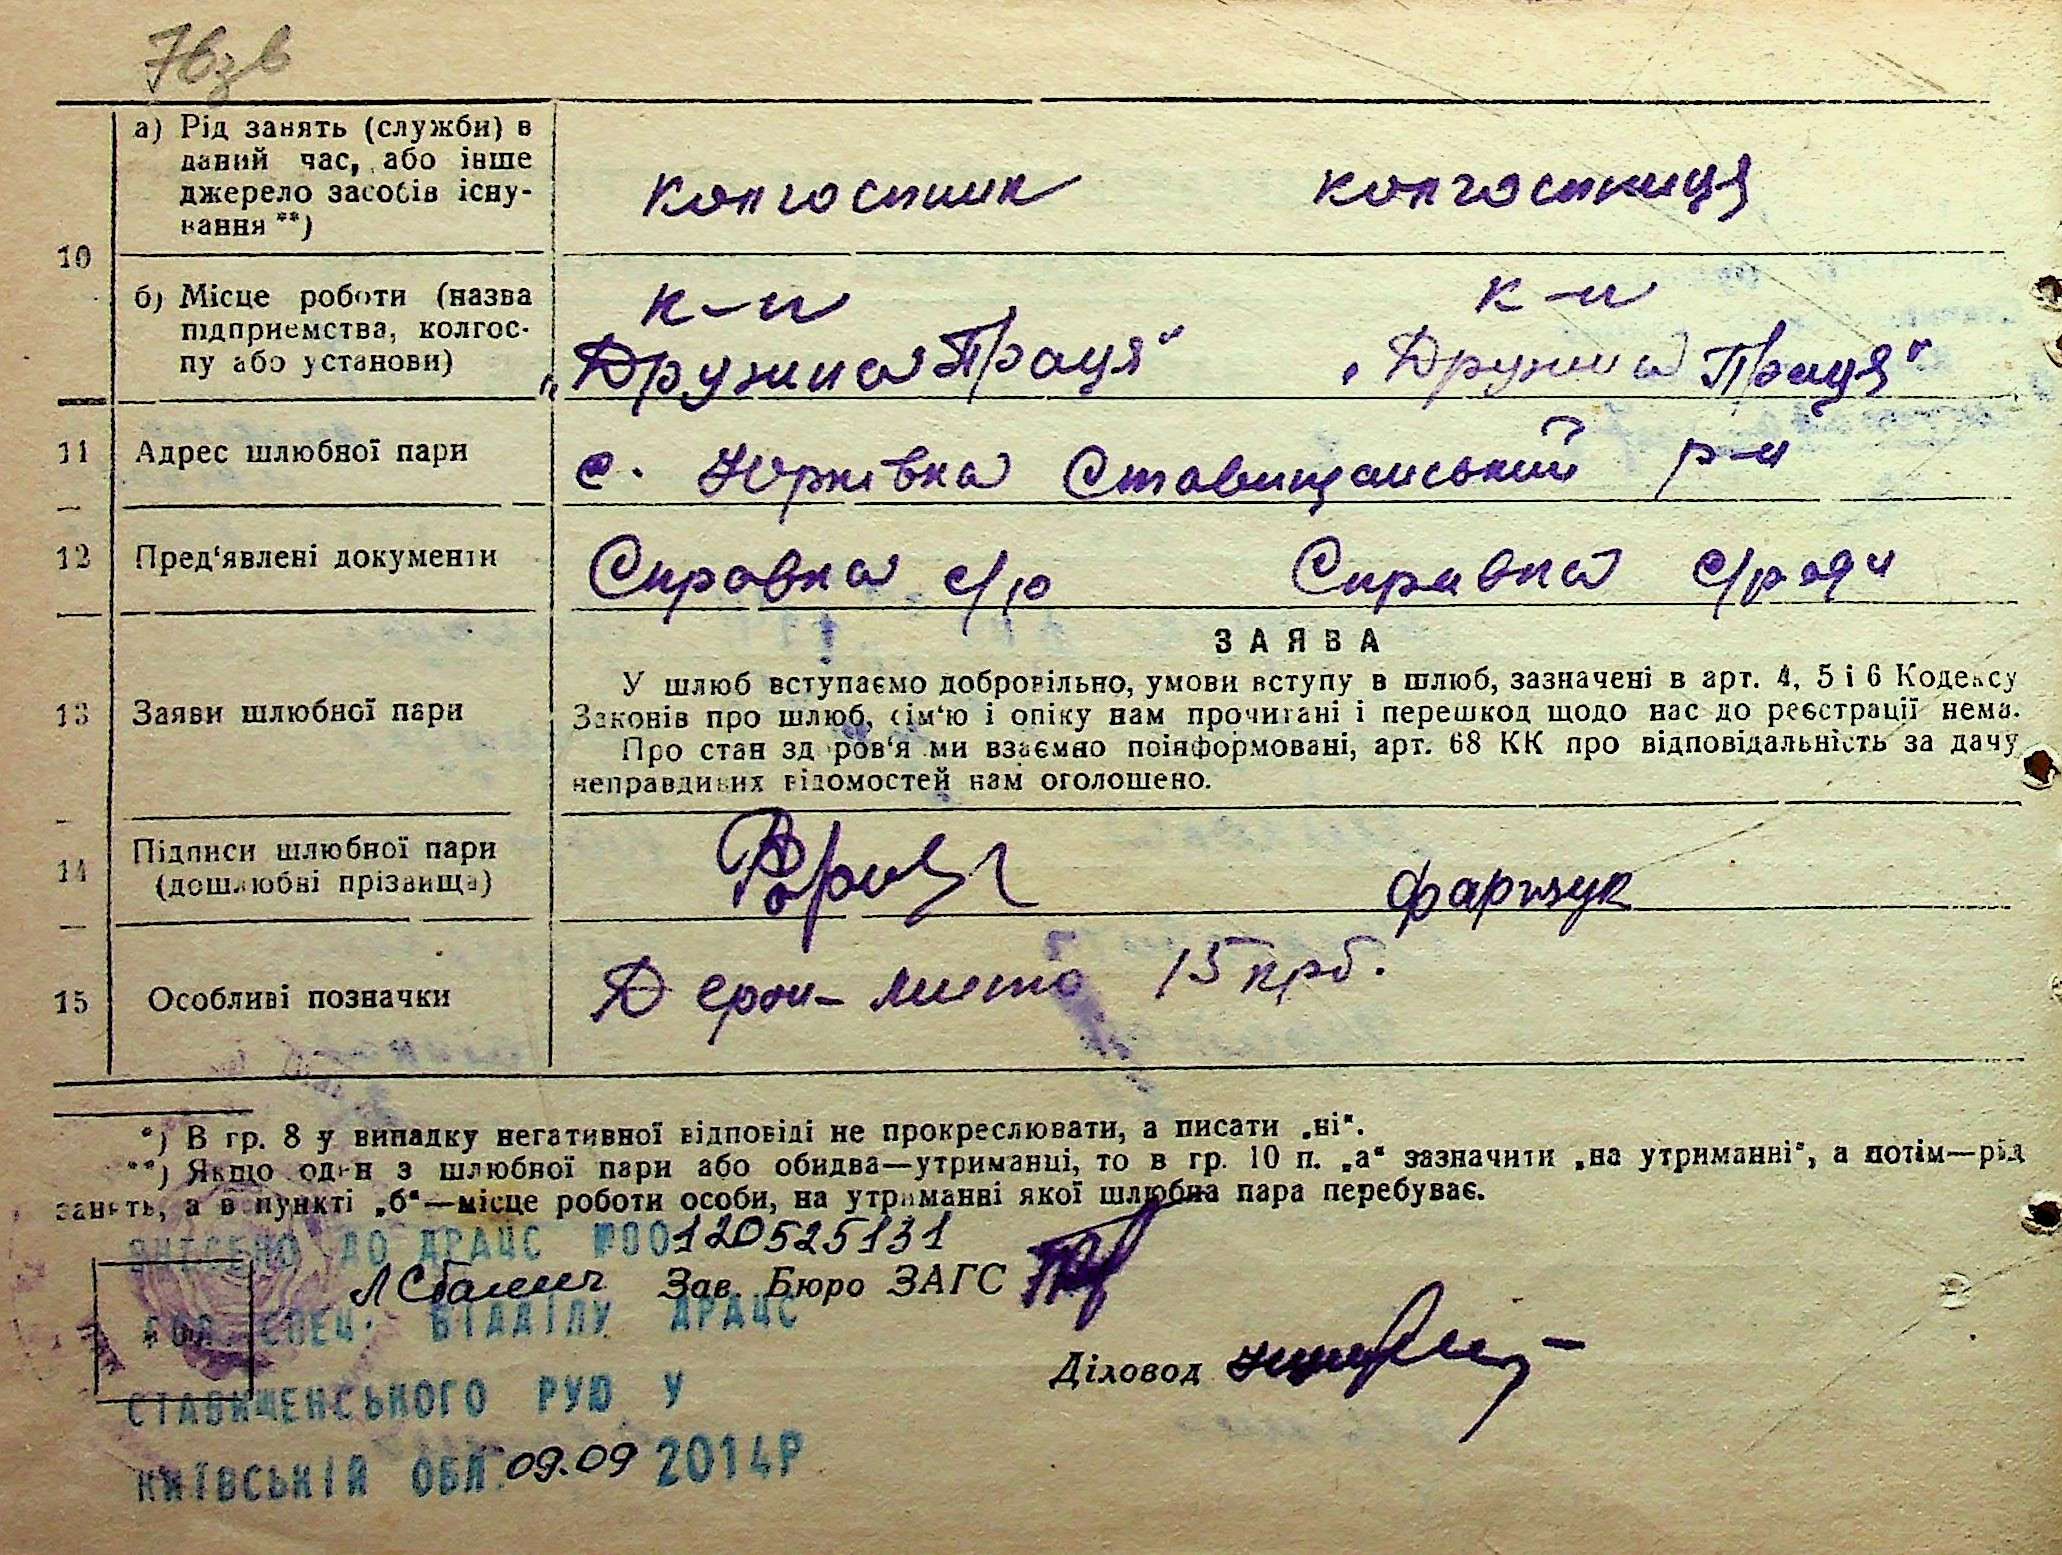 10
а) Рід занять (служби) в
даний час, або інше
джерело засобів існу-
вання **)
колгоспник колгоспниця
б) Місце роботи (назва
підприємства, колгос-
пу або установи)
к-п к-п
„Дружна Праця“ „Дружна Праця“
11 Адрес шлюбної пари с. Юрківка Ставищанський р-н
12 Пред‘явлені документи Справка с/р Справка с/ради
13 Заяви шлюбної пари
ЗАЯВА
У шлюб вступаємо добровільно, умови вступу в шлюб, зазначені в арт. 4, 5 і 6 Кодексу
Законів про шлюб, сім‘ю і опіку нам прочитані і перешкод щодо нас до реєстрації нема.
Про стан здоров‘я ми взаємно поінформовані, арт. 68 КК про відповідальність за дачу
неправдивих відомостей нам оголошено.
14 Підписи шлюбної пари
(дошлюбні прізвища)
15 Особливі позначки Держ-мито 15 крб.
*) В гр. 8 у випадку негативної відповіді не прокреслювати, а писати „ні“.
**) Якщо один з шлюбної пари або обидва—утриманці, то в гр. 10 п. „а“ зазначити „на утриманні“, а потім—рід
занять, а в пункті „б“—місце роботи особи, на утриманні якої шлюбна пара перебуває.
ВНЕСЕНО ДО ДРАЦС №00120525131
Зав. Бюро ЗАГС
ГОЛ. СПЕЦ. ВІДДІЛУ ДРАЦС
Діловод
СТАВИЩЕНСЬКОГО РУЮ У
КИЇВСЬКІЙ ОБЛ. 09.09 2014Р